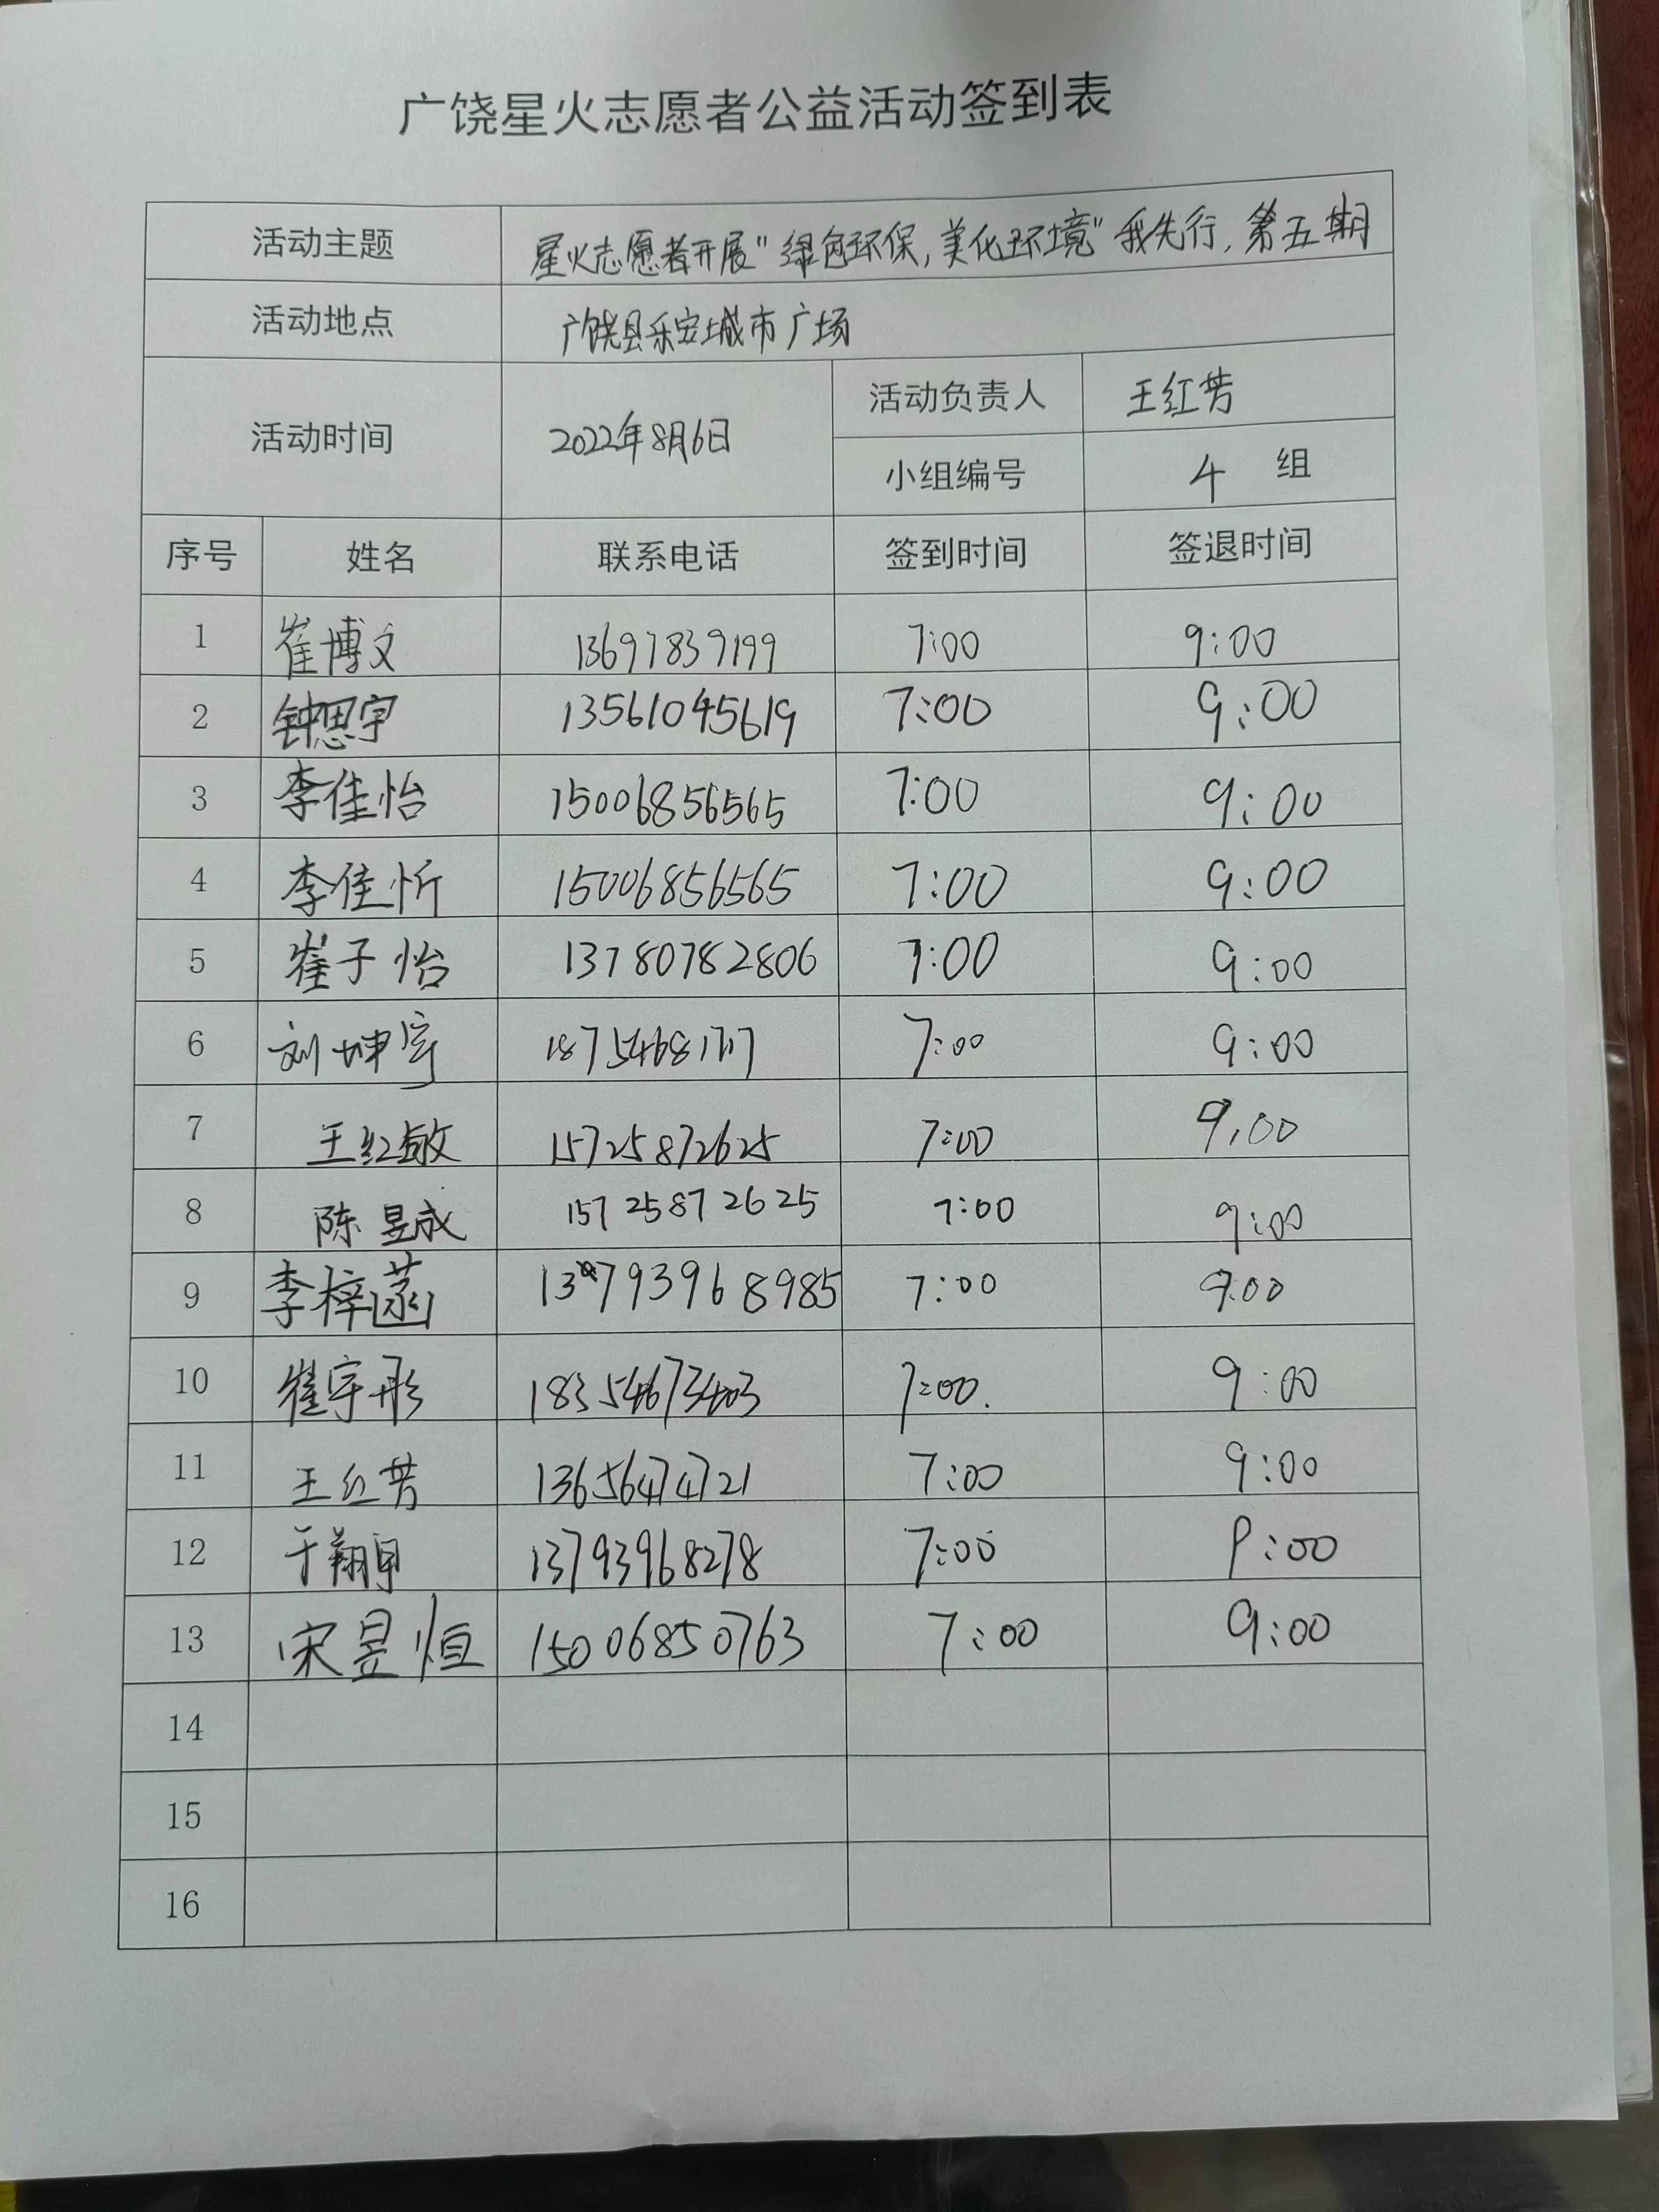 广饶星火志愿者公益活动签到表
活动主题 星火志愿者开展"绿色环保,美化环境"我先行,第五期
活动地点 广饶县乐安城市广场
活动时间 2022年8月6日 活动负责人 王红芳
小组编号 4 组
序号 姓名 联系电话 签到时间 签退时间
1 崔博文 13697839199 7:00 9:00
2 钟思宇 13561045619 7:00 9:00
3 李佳怡 15006856565 7:00 9:00
4 李佳忻 15006856565 7:00 9:00
5 崔子怡 13780782806 7:00 9:00
6 刘坤宇 7:00 9:00
7 王红敏 15725872625 7:00 9,00
8 陈昱成 15725872625 7:00 9:00
9 李梓菡 13793968985 7:00 9:00
10 崔宇彤 18354673403 7:00. 9:00
11 王红芳 13656474721 7:00 9:00
12 13793968278 7:00 9:00
13 宋昱恒 15006850763 7:00 9:00
14
15
16